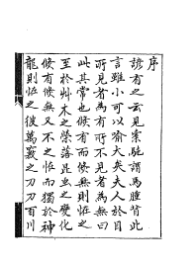 序
諺有之云見橐駝謂馬腫背此
言雖小可以喻大矣夫人於目
所見者為有所不見者為無曰
此其常也倏有而倏無則怪之
至於艸木之榮落昆虫之變化
倏有倏無又不之怪而獨於神
龍則怪之彼萬竅之刁刁百川